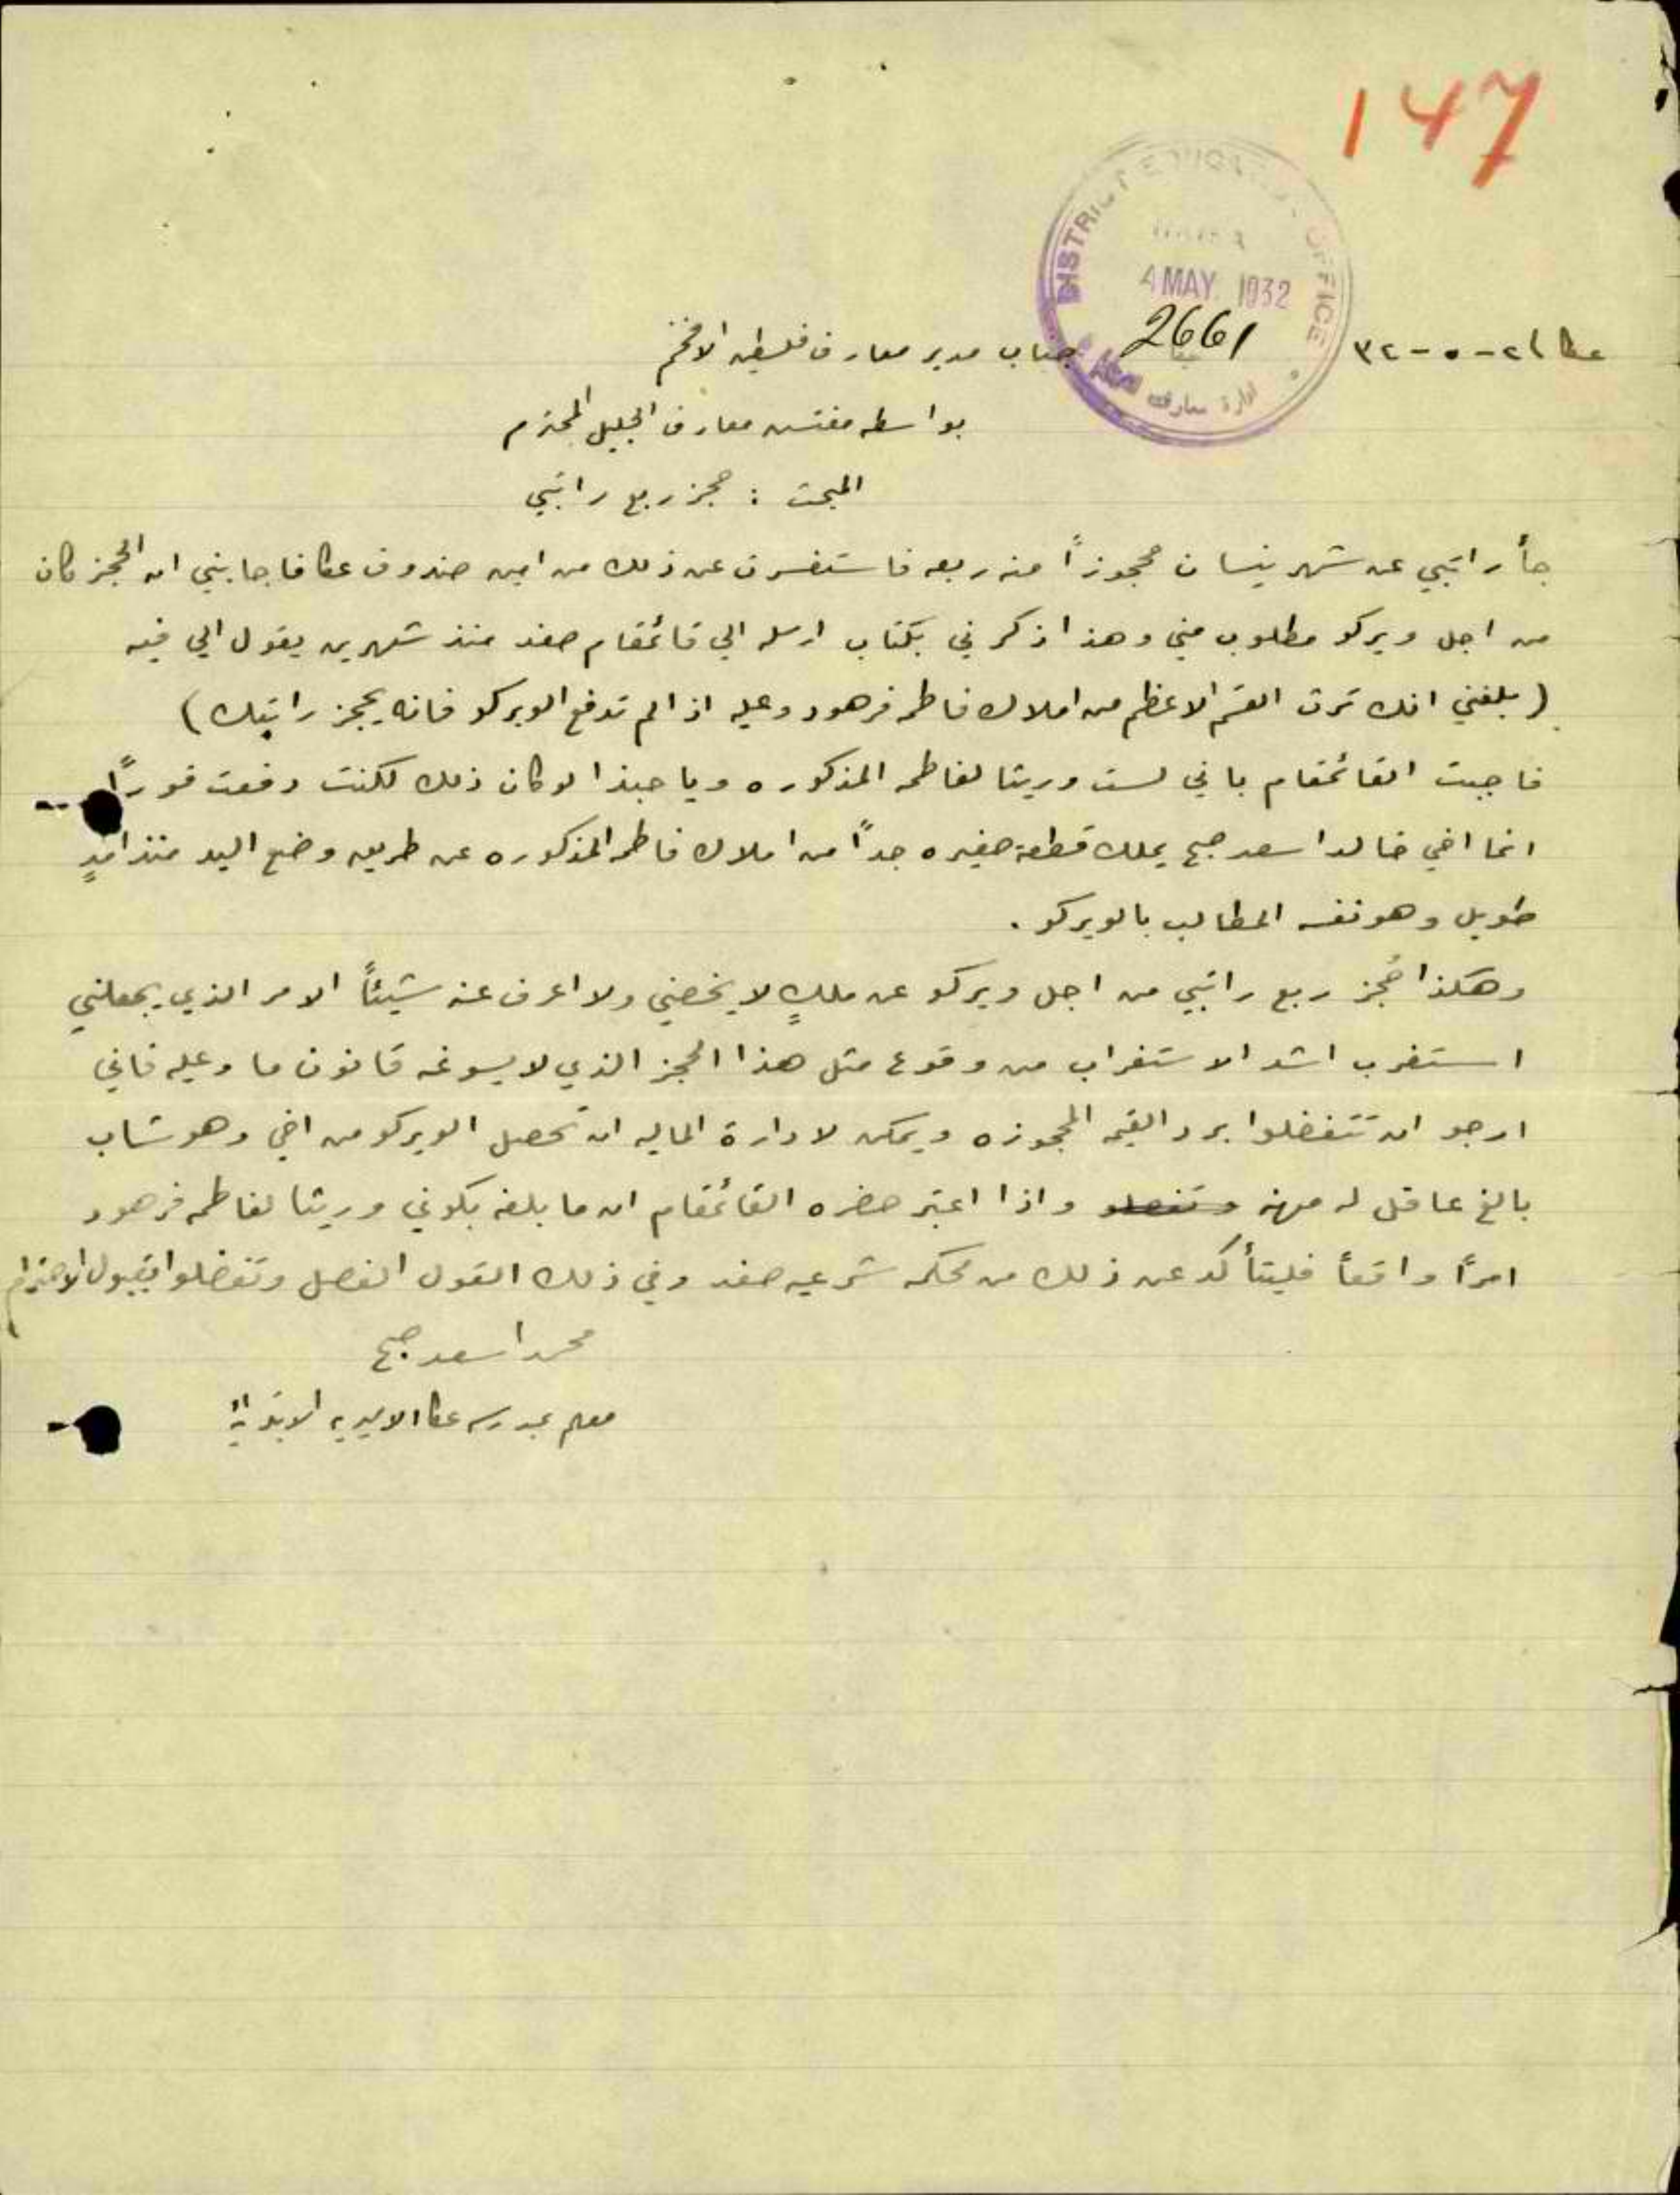 147
DISTRICT EDUCATION OFFICE
4 MAY 1932
2661
ادارة معارف
عكا ٢ - ٥ - ٣٢
جناب مدير معارف فلسطين الافخم
بواسطه مفتش معارف الجليل المحترم
المبحث : حجز ربع راتبي
جأ راتبي عن شهر نيسان محجوزاً منه ربعه فاستفسرت عن ذلك من امين صندوق عكا فاجابني ان الحجز كان
من اجل ويركو مطلوب مني وهذا ذكرني بكتاب ارسله الي قائمقام صفد منذ شهرين يقول الي فيه
( بلغني انك ترث القسم الاعظم من املاك فاطمه فرهود وعليه اذا لم تدفع الويركو فانه يحجز راتبك )
فاجبت القائمقام باني لست وريثا لفاطمه المذكوره ويا حبذا لو كان ذلك لكنت دفعت فوراً
انما اخي خالد اسعد صبح يملك قطعة صغيره جداً من املاك فاطمه المذكوره عن طريق وضع اليد منذ امدٍ
طويل وهو نفسه المطالب بالويركو .
وهكذا حُجز ربع راتبي من اجل ويركو عن ملكٍ لا يخصني ولا اعرف عنه شيئاً الامر الذي يجعلني
استغرب اشد الاستغراب من وقوع مثل هذا الحجز الذي لا يسوغه قانون ما وعليه فاني
ارجو ان تتفضلوا برد القيمه المحجوزه ويمكن لادارة الماليه ان تحصل الويركو من اخي وهو شاب
بالغ عاقل له مهنه وتفضلو واذا اعتبر حضره القائمقام ان ما بلغه بكوني وريثا لفاطمه فرهود
امراً واقعاً فليتأكد عن ذلك من محكمه شرعيه صفد وفي ذلك القول الفصل وتفضلوا بقبول الاحترام
محمد اسعد صبح
معلم بمدرسه عكا الاميريه الابتدائية